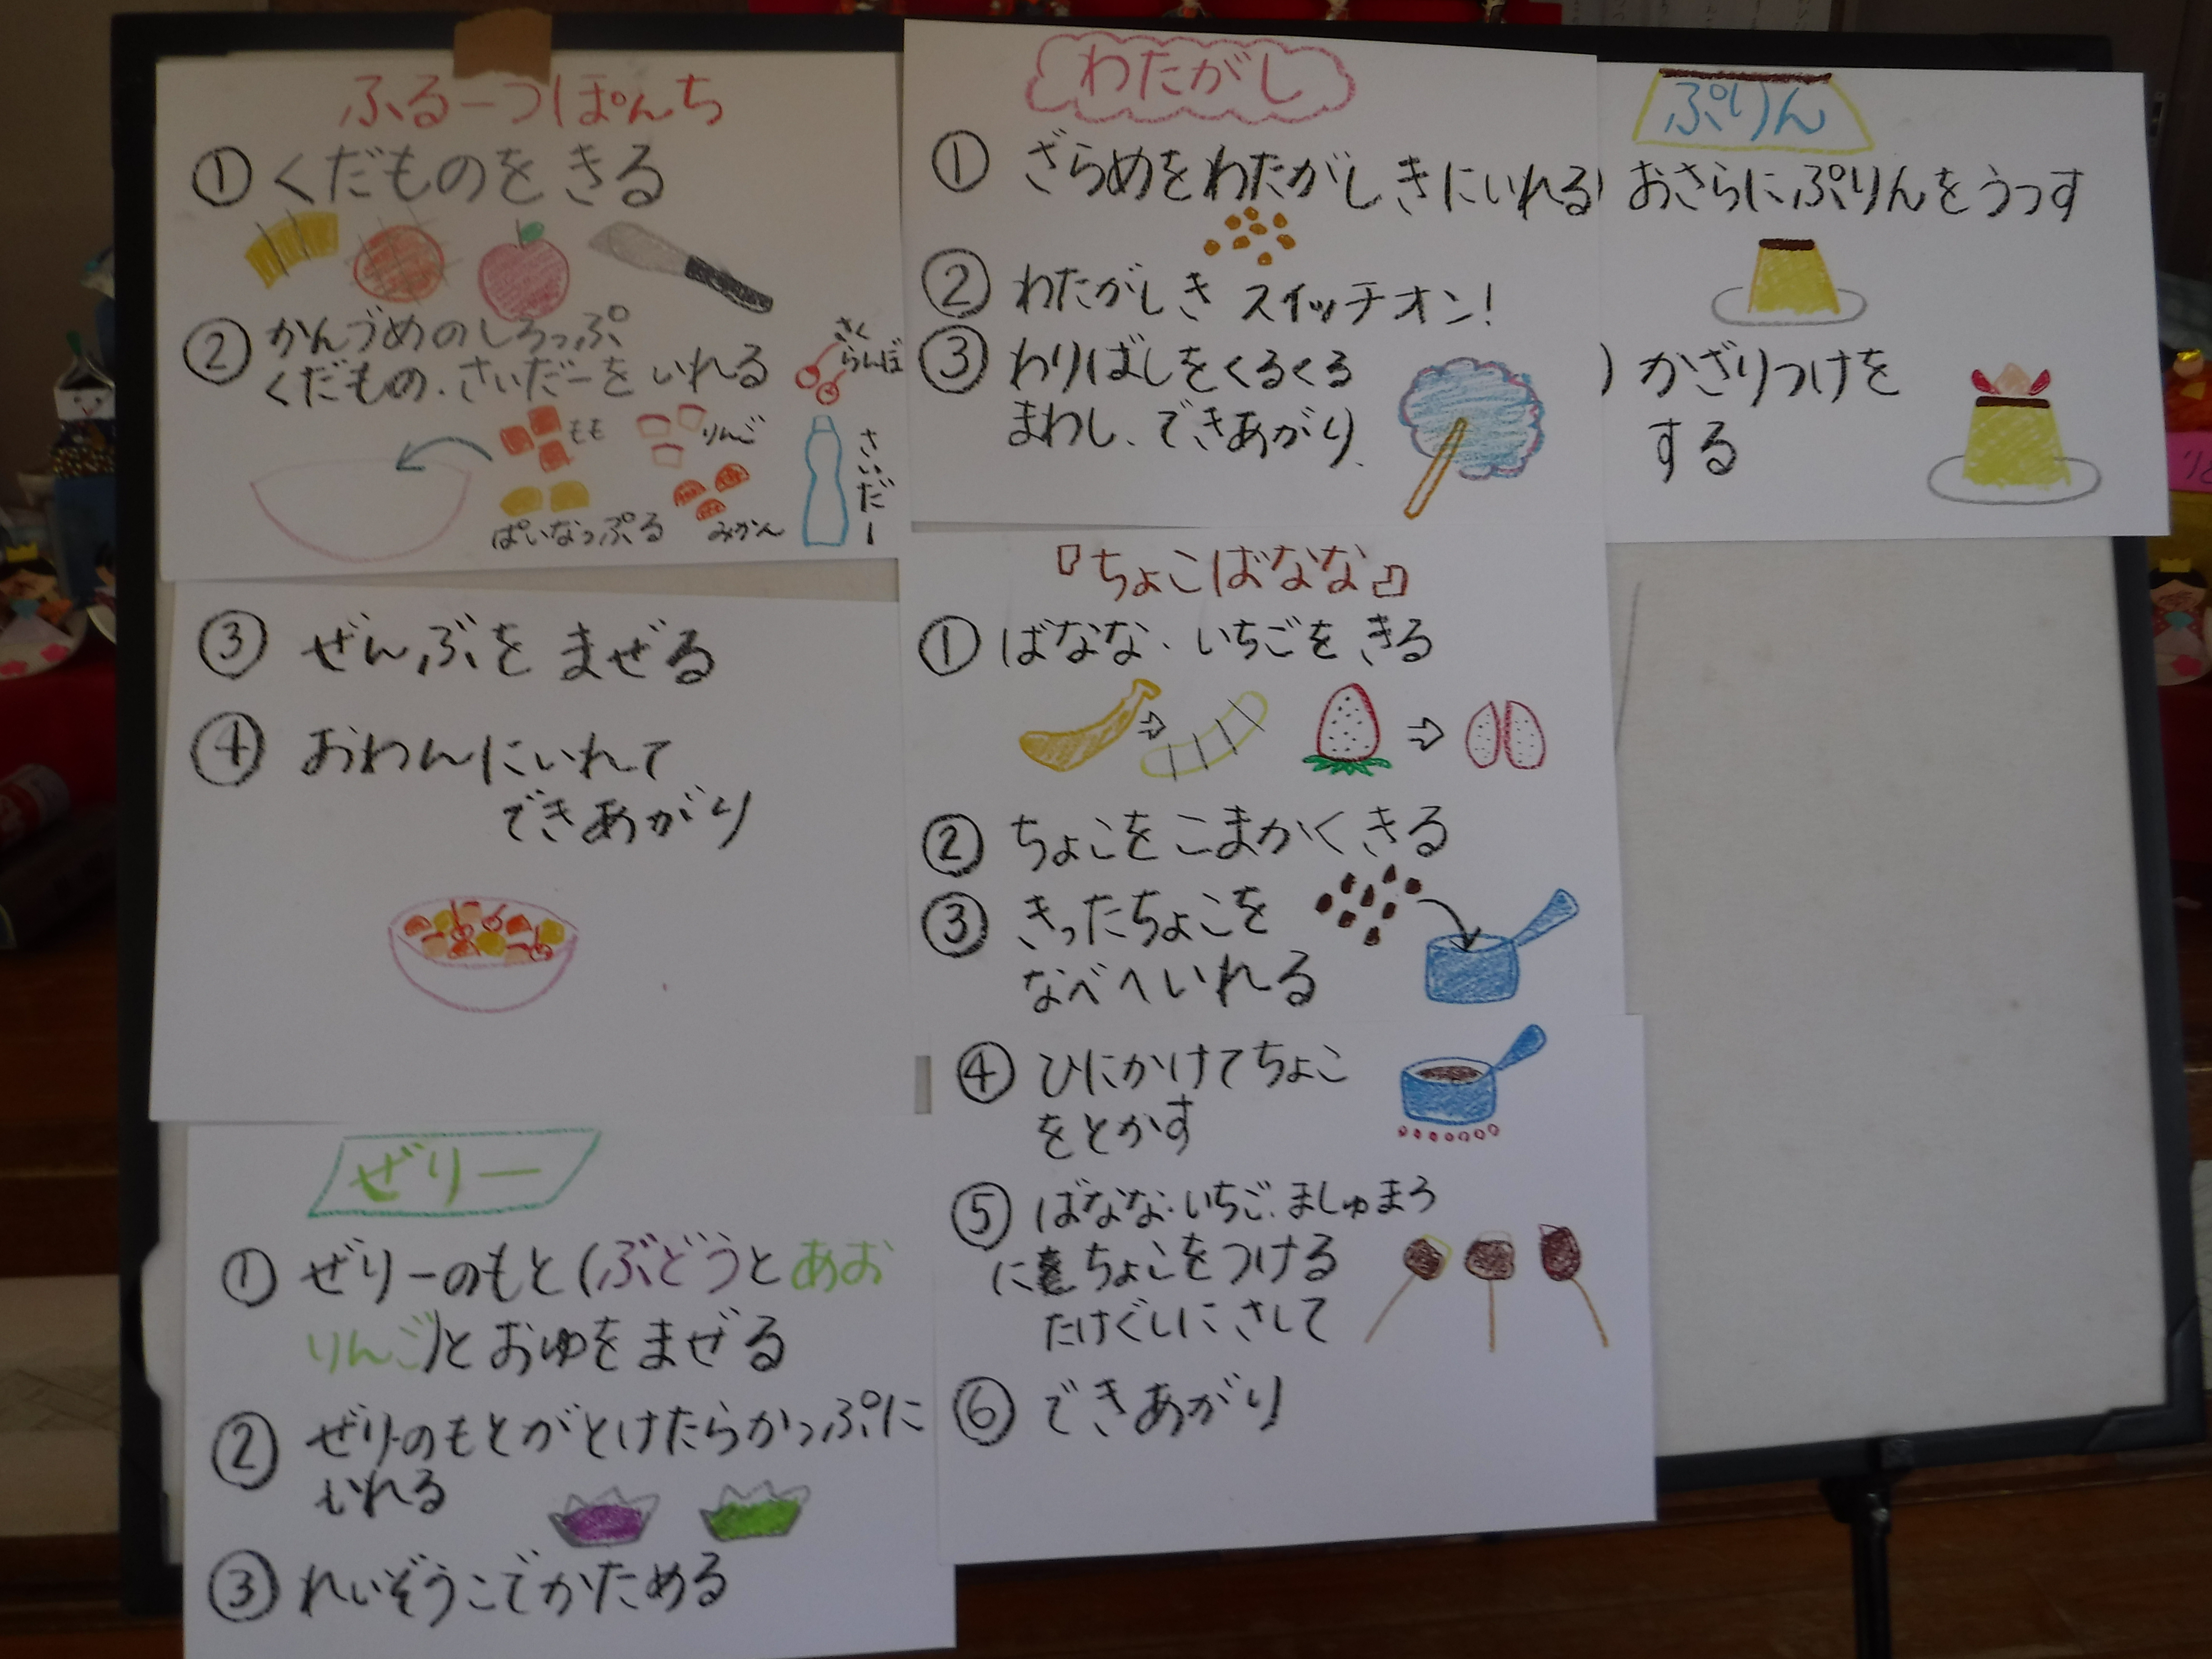 ふるーつぽんち
①くだものをきる
②かんづめのしろっぷ
くだもの.さいだーをいれる
さく
らんぼ
もも
りんご
ぱいなっぷる
みかん
さいだー
③ぜんぶをまぜる
④おわんにいれて
できあがり
ぜりー
①ぜりーのもと(ぶどうとあお
りんご)とおゆをまぜる
②ぜりーのもとがとけたらかっぷに
いれる
③れいぞうこでかためる
わたがし
①ざらめをわたがしきにいれる
②わたがしきスイッチオン!
③わりばしをくるくる
まわし、できあがり.
『ちょこばなな』
①ばなな.いちごをきる
②ちょこをこまかくきる
③きったちょこを
なべへいれる
④ひにかけてちょこ
をとかす
⑤ばなな.いちご.ましゅまろ
にちょこをつける
たけぐしにさして
⑥できあがり
ぷりん
おさらにぷりんをうつす
かざりつけを
する